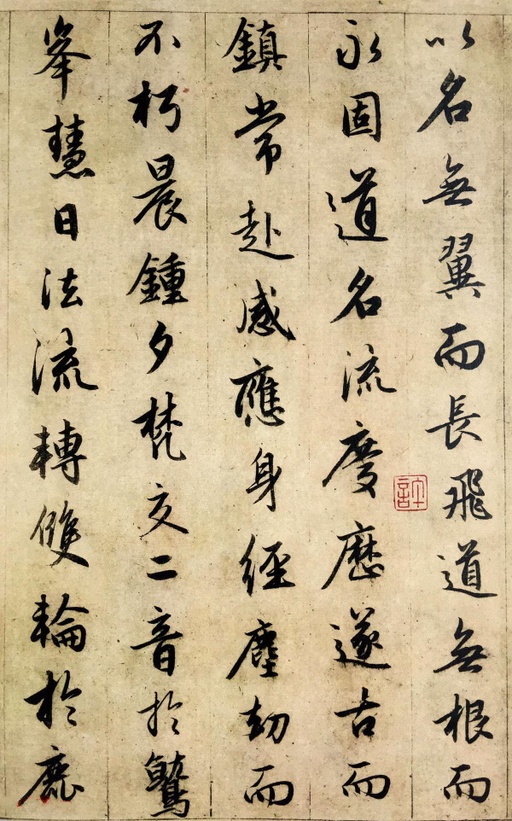 以名無翼而長飛道無根而
永固道名流慶歷遂古而
鎮常赴感應身經塵劫而
不朽晨鍾夕梵交二音於鷲
峯慧日法流轉雙輪於鹿
許